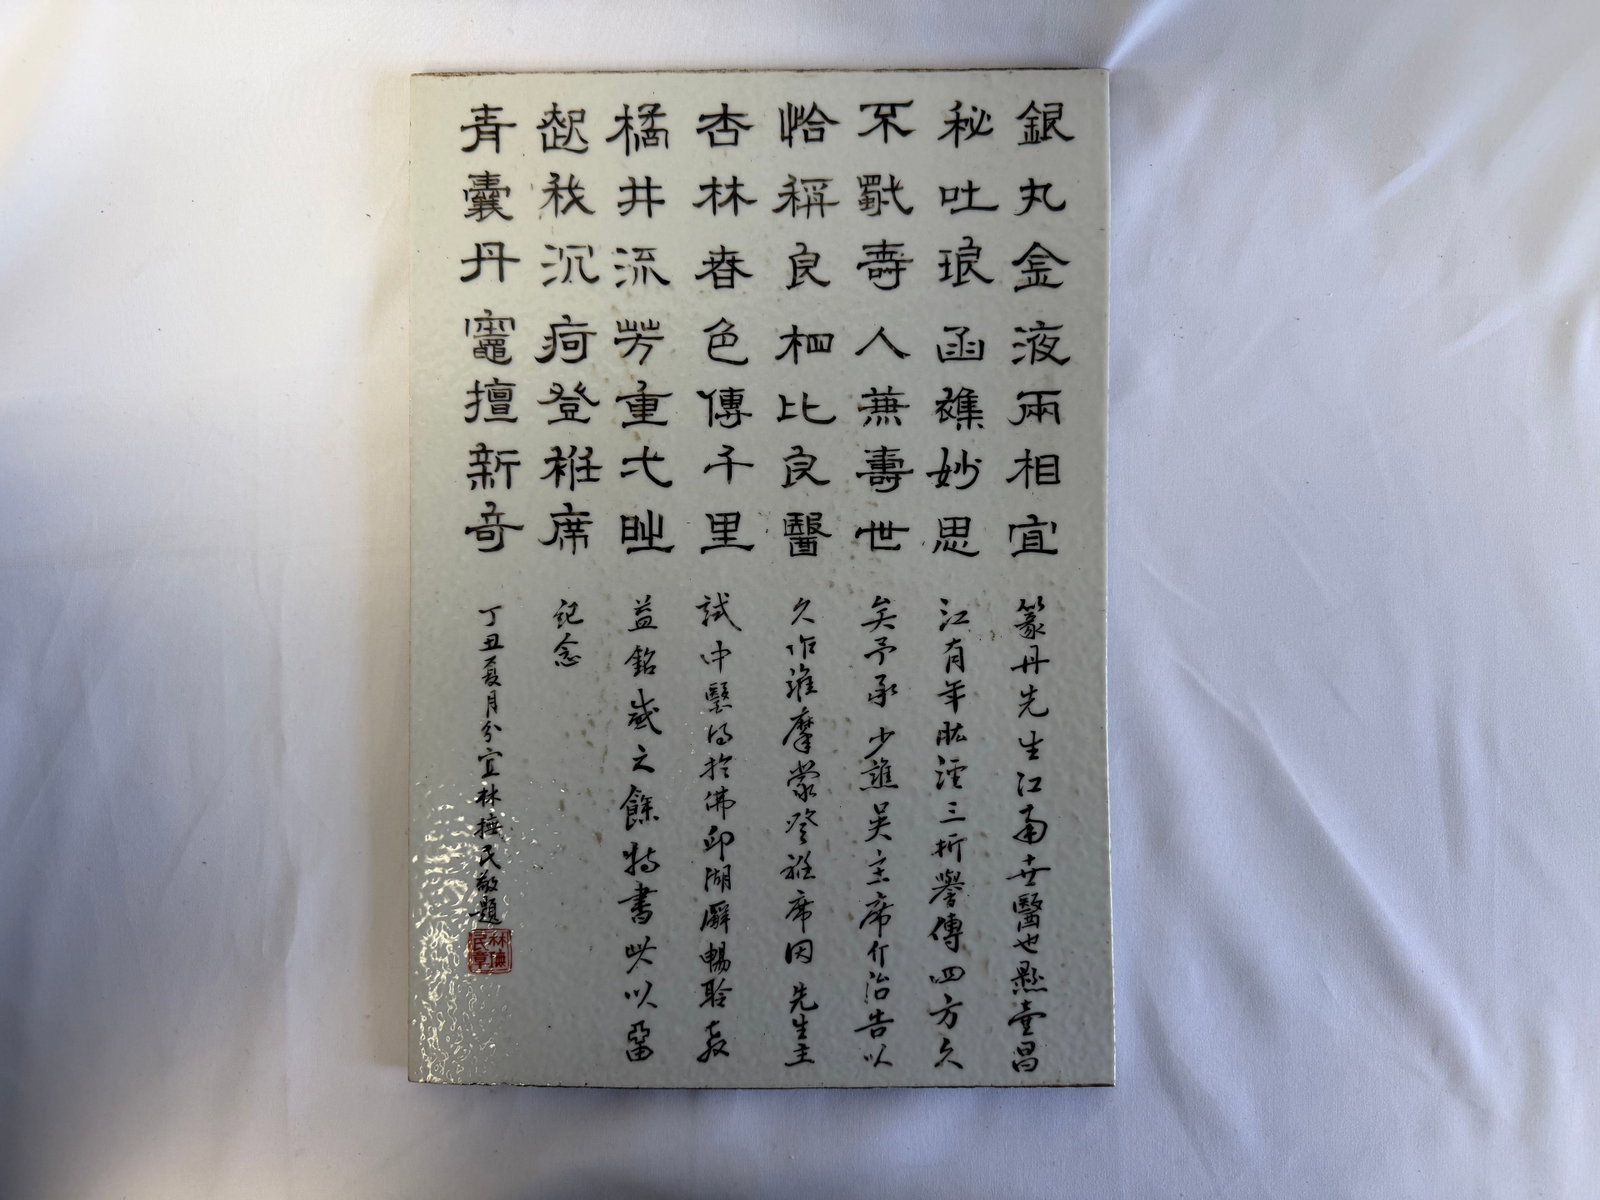 銀丸金液兩相宜
秘吐琅函難妙思
不獸壽人兼壽世
恰稱良相比良醫
杏林春色傳千里
橘井流芳重弍
起我沉疴登袵席
青囊丹竈擅新奇
篆丹先生江南世醫也懸壺昌
江有年肱經三折譽傳四方久
矣予承少譙吳主席介治告以
久作維摩蒙登袵席因先生主
試中醫得於佛印湖辱暢聆教
益銘感之餘特書此以留
記念
丁丑夏月分宜林 民敬題